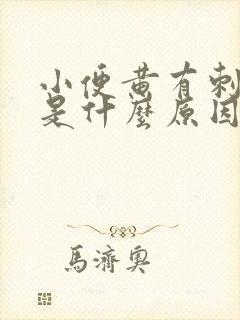 小便黄有刺
是什麼原因
馬濟奧